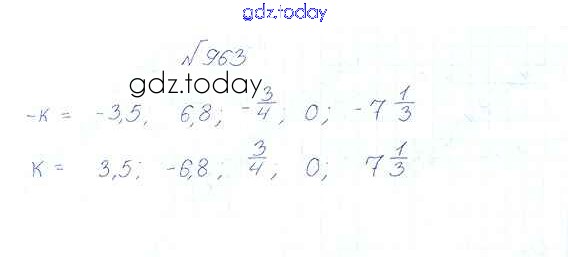 gdz.today
№963
gdz.today
-к = -3,5, 6,8; -3/4; 0; -7 1/3
к = 3,5; -6,8; 3/4; 0; 7 1/3